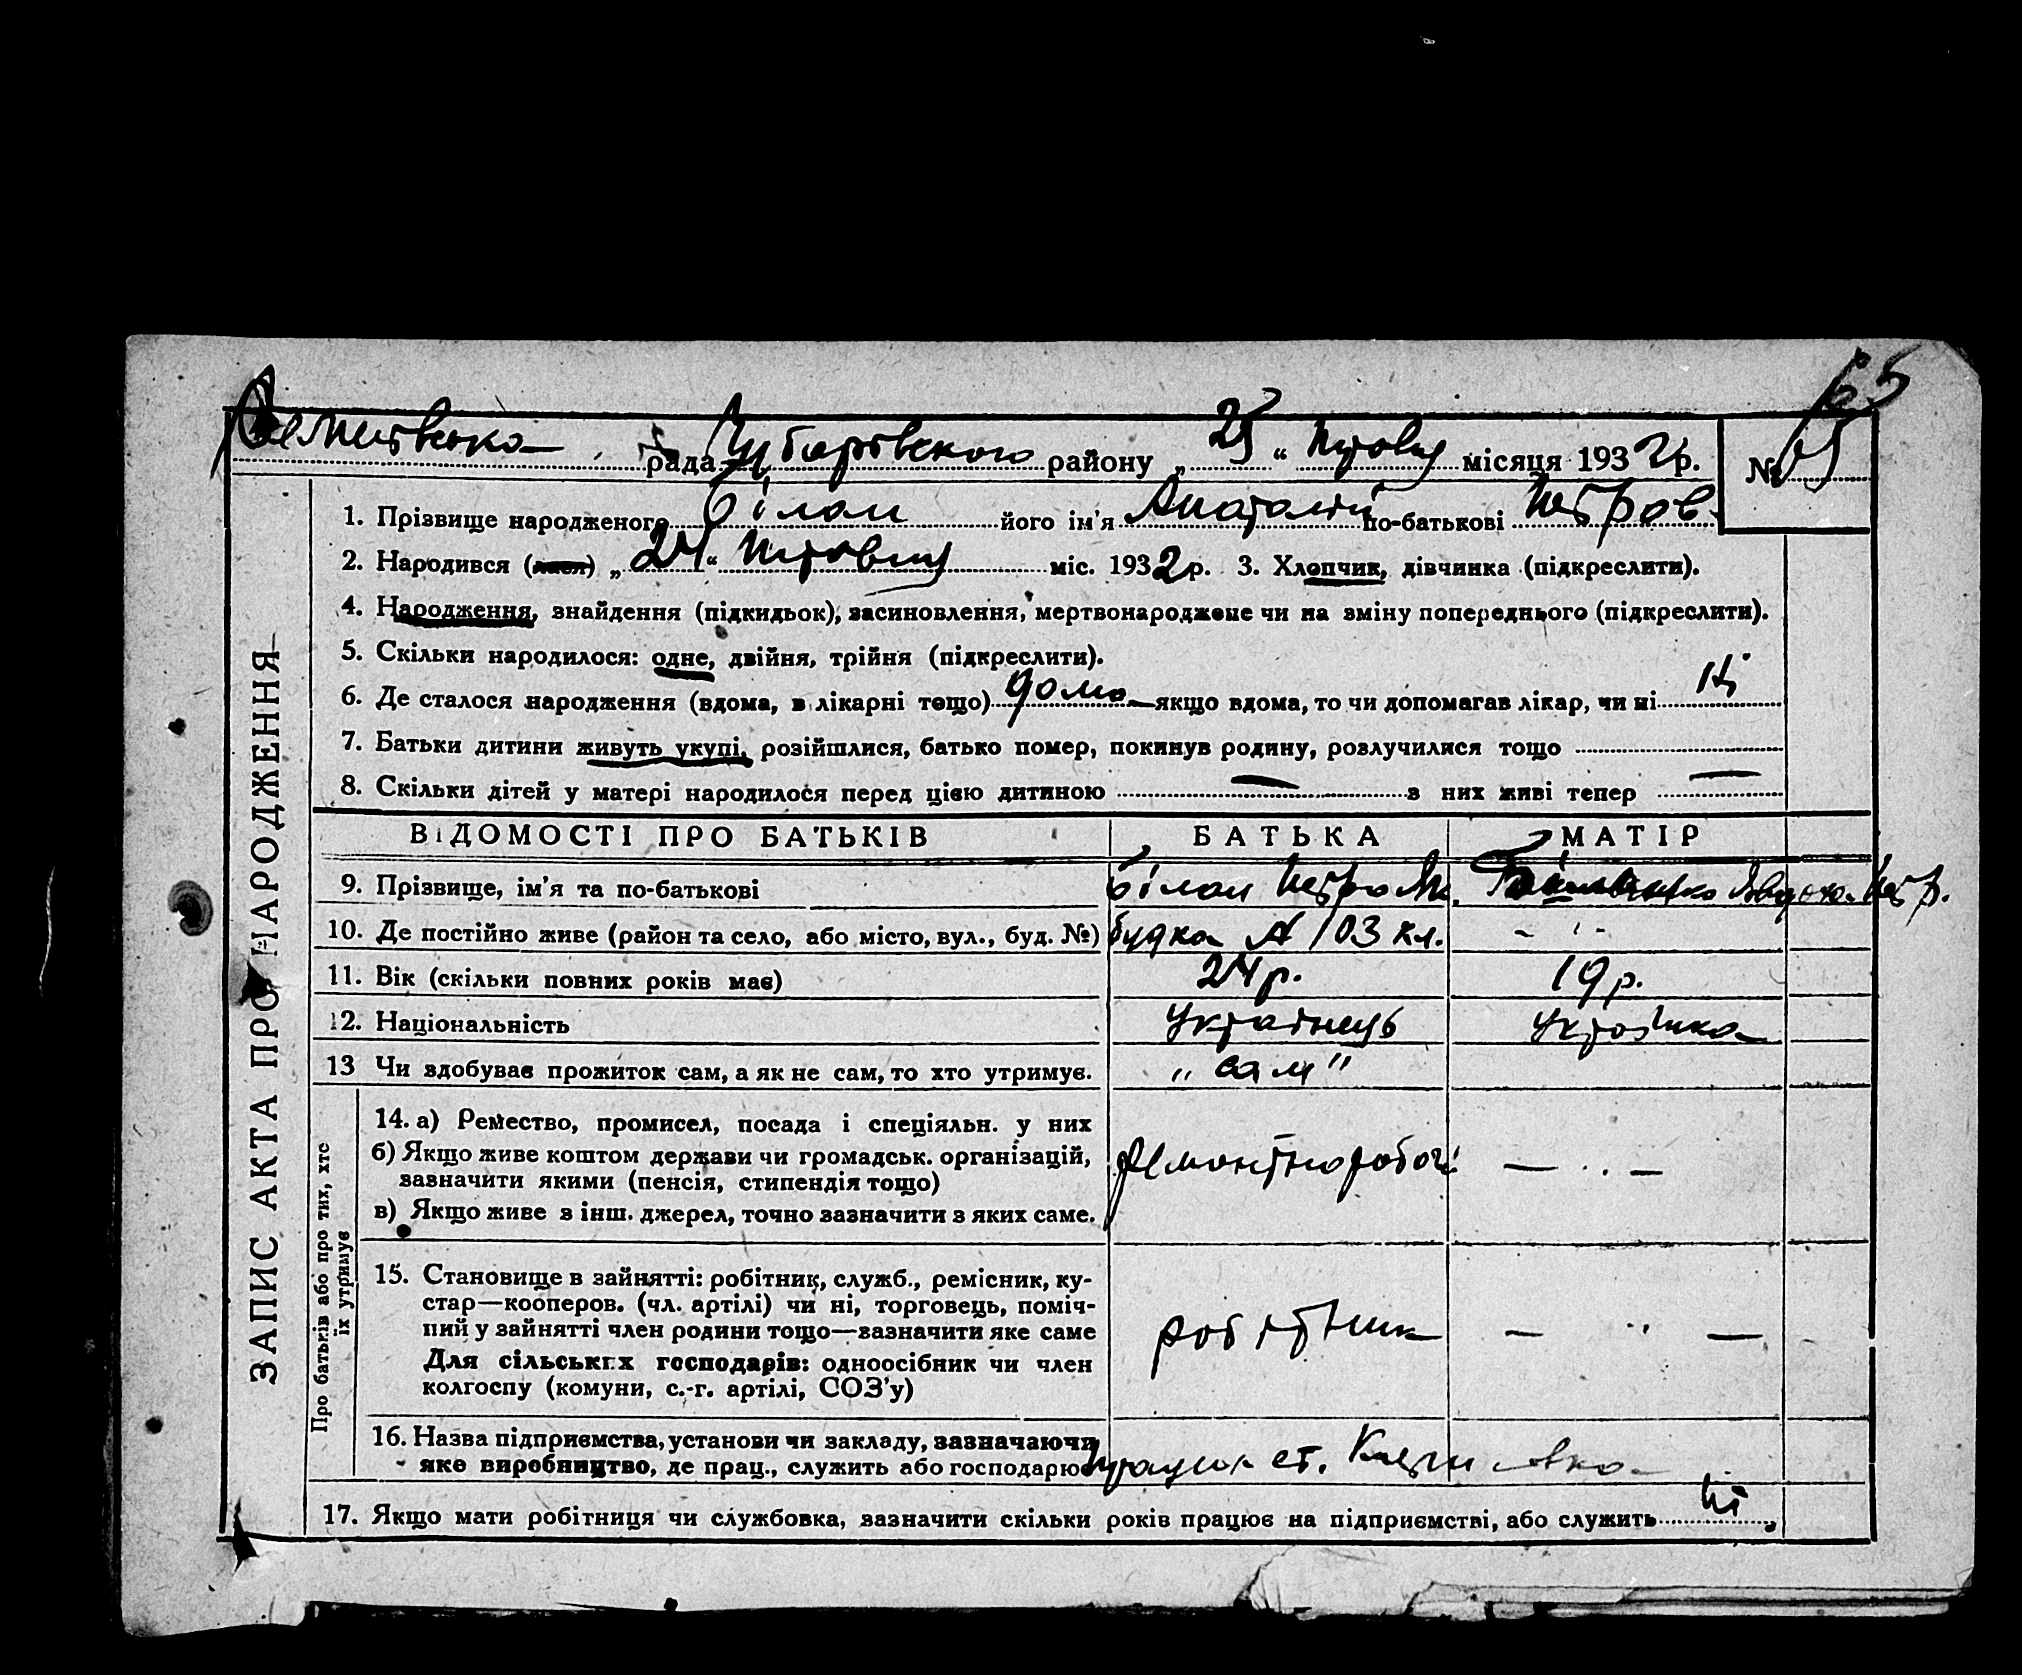 65
рада Чубарівського району „25“ Травня місяця 1932 р. №
1. Прізвище народженого Білан його ім'я Анатолій по-батькові Петров.
2. Народився (лася) „24“ Травня міс. 1932 р. 3. Хлопчик, дівчинка (підкреслити).
4. Народження, знайдення (підкидьок), засиновлення, мертвонароджене чи на зміну попереднього (підкреслити).
5. Скільки народилося: одне, двійня, трійня (підкреслити).
6. Де сталося народження (вдома, в лікарні тощо) дома якщо вдома, то чи допомагав лікар, чи ні ні
7. Батьки дитини живуть укупі, розійшлися, батько помер, покинув родину, розлучилися тощо
8. Скільки дітей у матері народилося перед цією дитиною — з них живі тепер —
ЗАПИС АКТА ПРО НАРОДЖЕННЯ
ВІДОМОСТІ ПРО БАТЬКІВ БАТЬКА МАТІР
9. Прізвище, ім'я та по-батькові Білан Петро Петр.
10. Де постійно живе (район та село, або місто, вул., буд. №) будка 103 кл. - " -
11. Вік (скільки повних років має) 24 р. 19 р.
12. Національність Українець Українка
13 Чи здобуває прожиток сам, а як не сам, то хто утримує. „сам"
Про батьків або про тих, хто
їх утримує
14. а) Ремество, промисел, посада і спеціяльн. у них
б) Якщо живе коштом держави чи громадськ. організацій,
зазначити якими (пенсія, стипендія тощо) Ремонтно робоч. — " —
в) Якщо живе з інш. джерел, точно зазначити з яких саме.
15. Становище в зайнятті: робітник, служб., ремісник, ку-
стар—кооперов. (чл. артілі) чи ні, торговець, поміч-
ний у зайнятті член родини тощо—зазначити яке саме робітник — " —
Для сільських господарів: одноосібник чи член
колгоспу (комуни, с.-г. артілі, СОЗ'у)
16. Назва підприємства, установи чи закладу, зазначаючи
яке виробництво, де прац., служить або господарює Працює ст.
17. Якщо мати робітниця чи службовка, зазначити скільки років працює на підприємстві, або служить ні